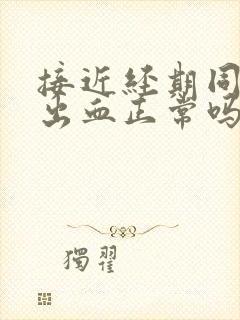 接近经期同
出血正常吗
獨翟